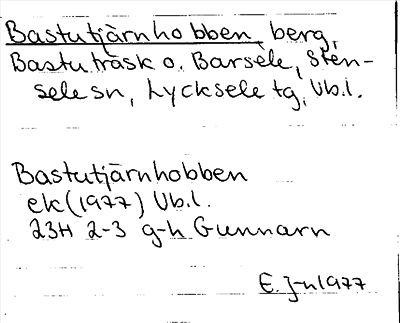 Bastutjärnhobben, berg,
Bastuträsk o. Barsele, Sten-
sele sn, Lycksele tg, Vb.l.
Bastutjärnhobben
ek (1977) Vb.l.
23H 2-3 g-h Gunnarn
E. J-n 1977